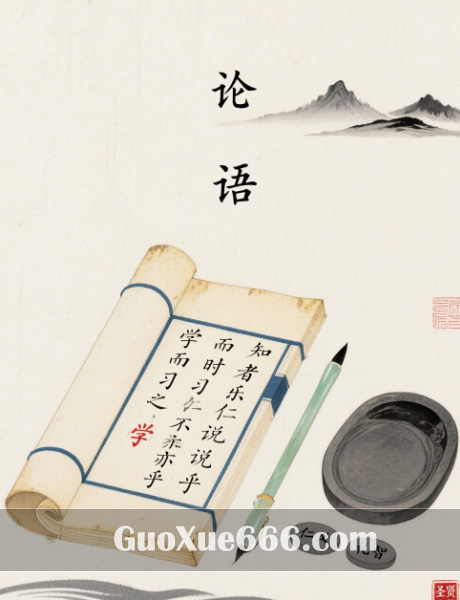 论语
知者乐仁说说乎
而时习不亦乎
学而习之、学
仁
智
GuoXue666.com
圣贤